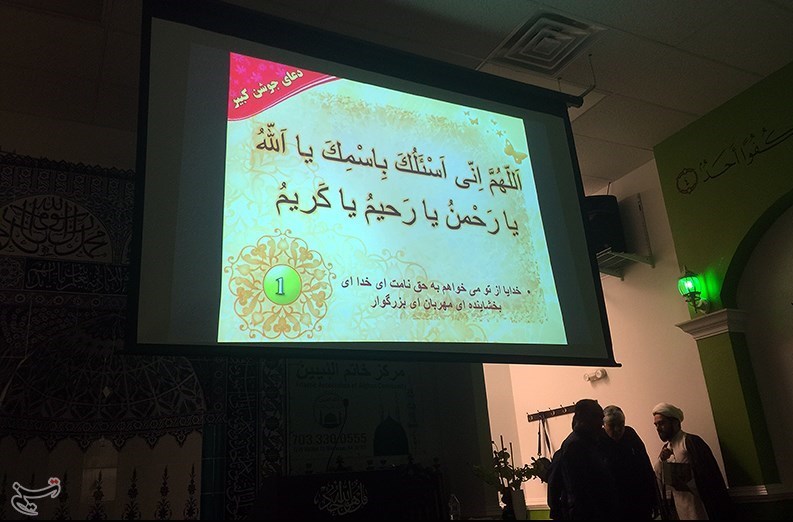 دعای جوشن کبیر
اَللّهُمَّ اِنّی اَسْئَلُكَ بِاسْمِكَ یا اَللّهُ
یا رَحْمنُ یا رَحیمُ یا کَریمُ
1
• خدایا از تو می خواهم به حق نامت ای خدا ای
بخشاینده ای مهربان ای بزرگوار
كُفُوًا أَحَدٌ
مرکز خاتم النبیین
703.330.9555
تسنیم